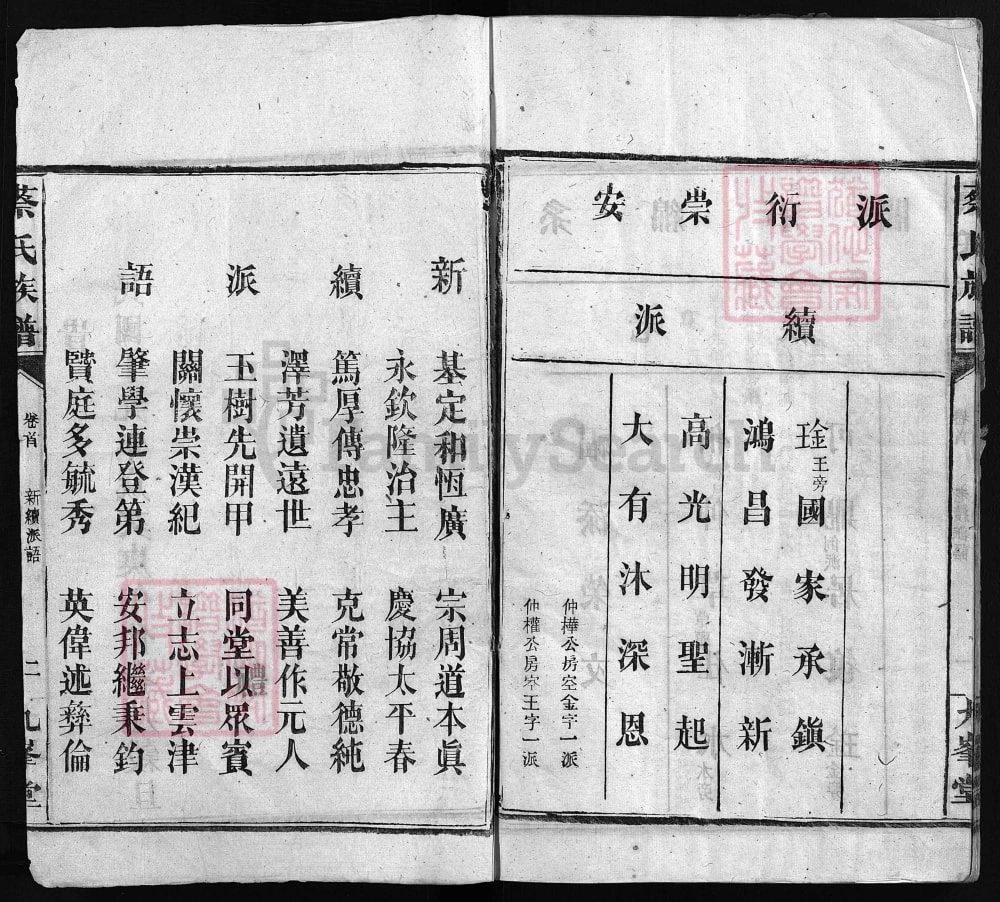 派衍崇安
續派
琻王旁國家承鎮
鴻昌發漸新
高光明聖起
大有沐深恩
仲樺公房空金字一派
仲權公房空王字一派
蔡氏族譜
九峯堂
新續派語
基定和恆廣 宗周道本眞
永欽隆治主 慶協太平春
篤厚傳忠孝 克常敬德純
澤芳遺遠世 美善作元人
玉樹先開甲 同堂以眾賓
關懷崇漢紀 立志上雲津
肇學連登第 安邦繼秉鈞
贊庭多毓秀 英偉述彝倫
蔡氏族譜 卷首 新續派語 二 九峯堂
FamilySearch